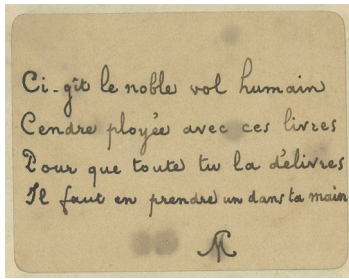 Ci-gît le noble vol humain
Cendre ployée avec ces livres
Pour que toute tu la délivres
Il faut en prendre un dans ta main
SM